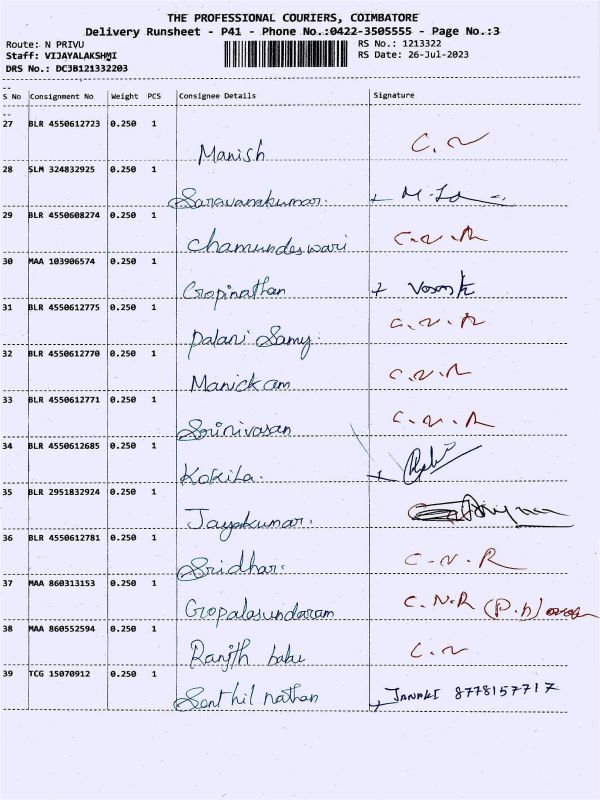 THE PROFESSIONAL COURIERS, COIMBATORE
Delivery Runsheet - P41 - Phone No.:0422-3505555 - Page No.:3
Route: N PRIVU RS No.: 1213322
Staff: VIJAYALAKSHMI RS Date: 26-Jul-2023
DRS No.: DCJB121332203
S No Consignment No Weight PCS Consignee Details Signature
27 BLR 4550612723 0.250 1
Manish C.N
28 SLM 324832925 0.250 1
Saravanakumar.
29 BLR 4550608274 0.250 1
Chamundeswari C.N.R
30 MAA 103906574 0.250 1
Gropinathan
31 BLR 4550612775 0.250 1
Palani Samy. C.N.R
32 BLR 4550612770 0.250 1
Manickam C.N.R
33 BLR 4550612771 0.250 1
Srinivasan C.N.R
34 BLR 4550612685 0.250 1
Kokila.
35 BLR 2951832924 0.250 1
Jayakumar.
36 BLR 4550612781 0.250 1
Sridhar. C.N.R
37 MAA 860313153 0.250 1
Gropalasundaram C.N.R (P.h)
38 MAA 860552594 0.250 1
Ranjth babu C.N
39 TCG 15070912 0.250 1
Senthil nathan JANAKI 8778157717